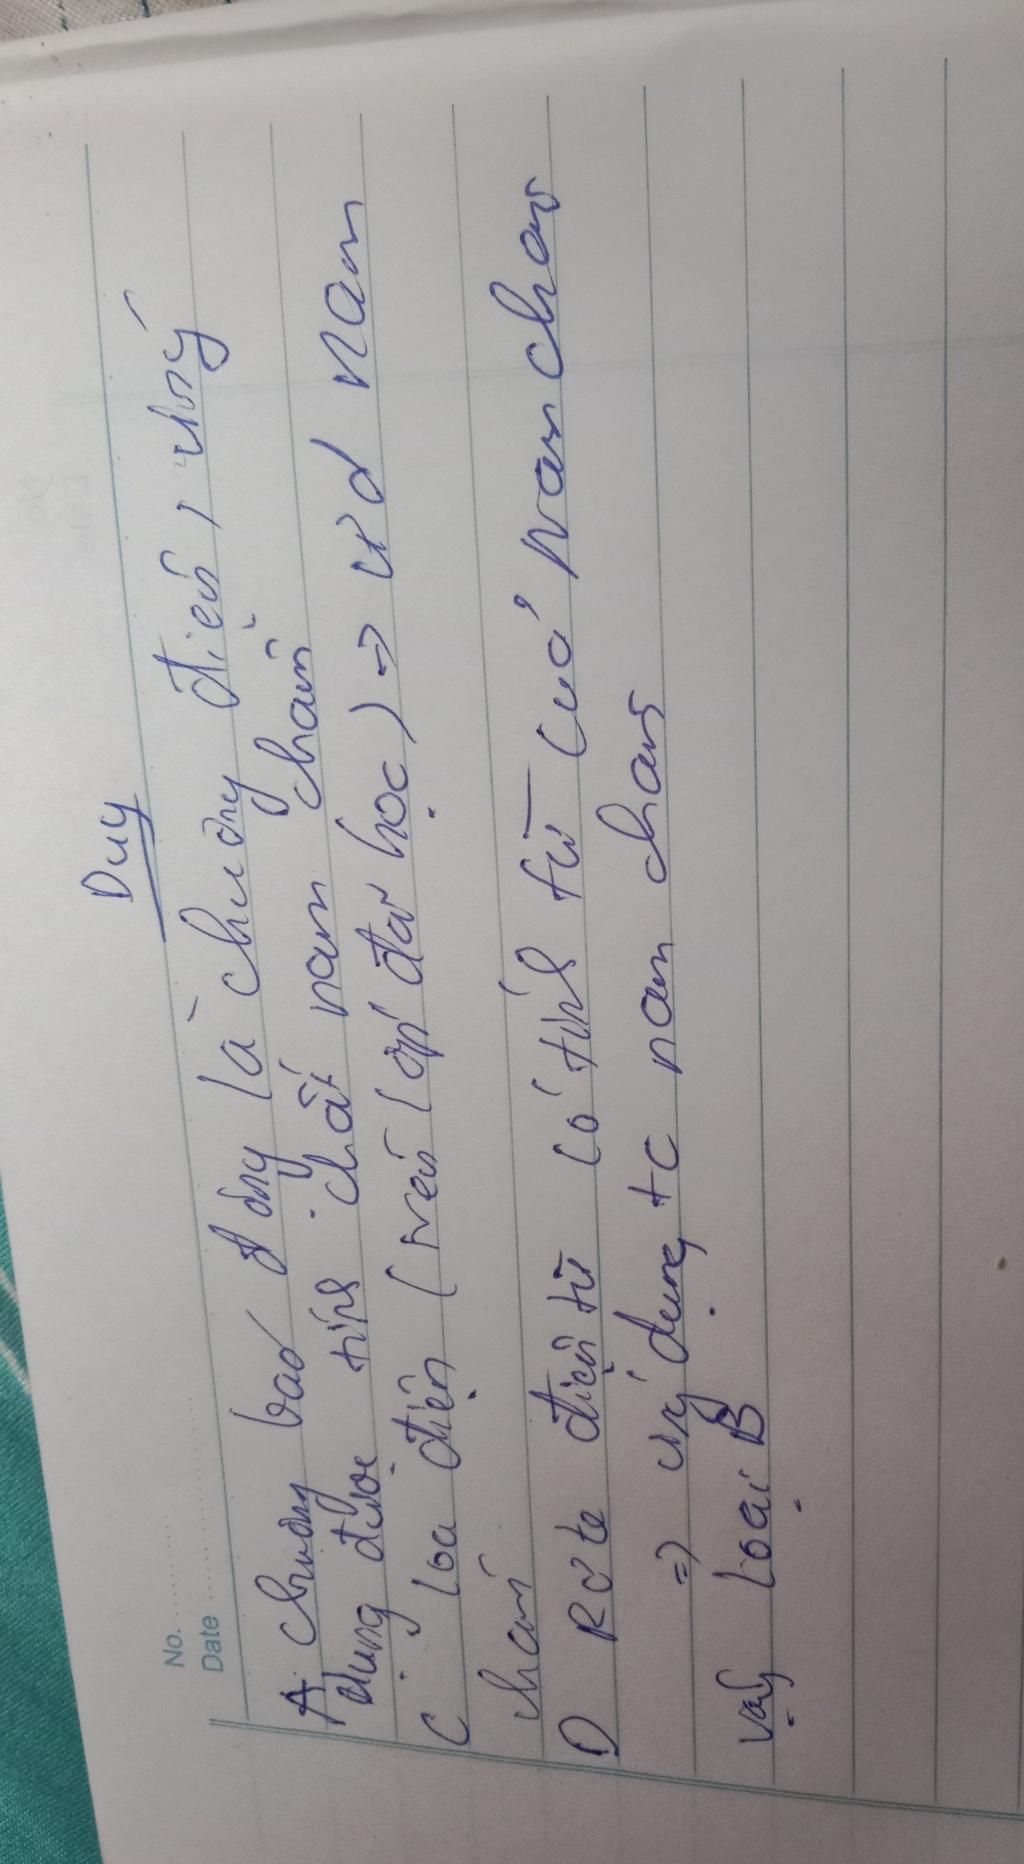 Duy
No.
Date
A. chuông báo động là chuông điện, ứng
dụng được tính chất nam châm
C loa điện (trên lớp đã học) => ư d nam
châm
D Rơ le điện từ có tính từ của nam châm
=> ứng dụng tc nam châm
vậy loại B